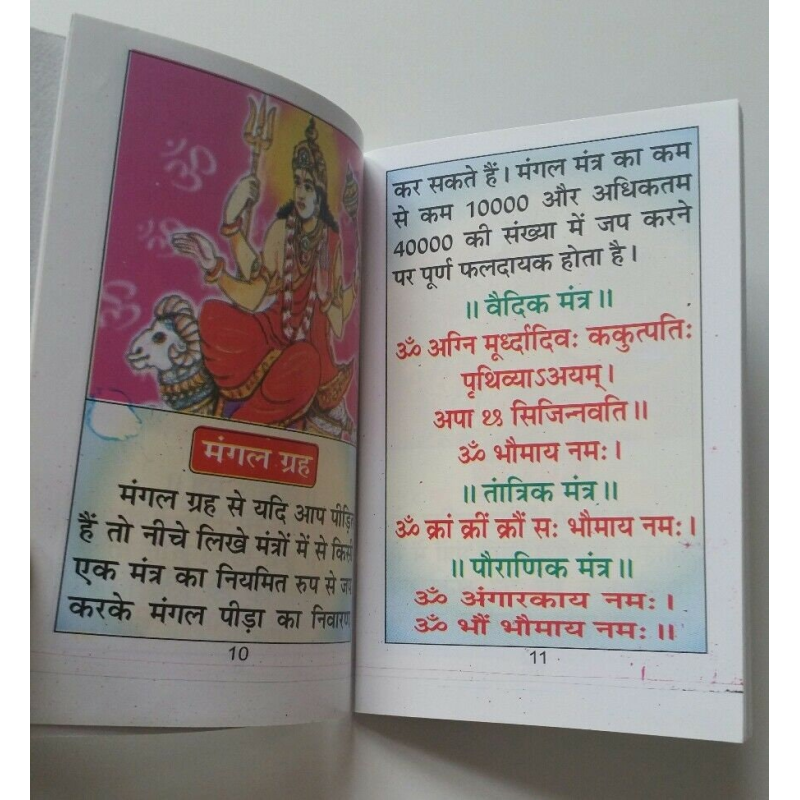 ॐ
ॐ
ॐ
मंगल ग्रह
मंगल ग्रह से यदि आप
हैं तो नीचे लिखे मंत्रों में से
एक मंत्र का नियमित रुप से
करके मंगल पीड़ा का निवारण
10
कर सकते हैं। मंगल मंत्र का कम
से कम 10000 और अधिकतम
40000 की संख्या में जप करने
पर पूर्ण फलदायक होता है।
॥ वैदिक मंत्र॥
ॐ अग्नि मूर्ध्दादिवः ककुत्पतिः
पृथिव्याऽअयम्।
अपा ꣳ सिजिन्नवति॥
ॐ भौमाय नमः।
॥ तांत्रिक मंत्र॥
ॐ क्रां क्रीं क्रौं सः भौमाय नमः।
॥ पौराणिक मंत्र॥
ॐ अंगारकाय नमः।
ॐ भौं भौमाय नमः॥
11